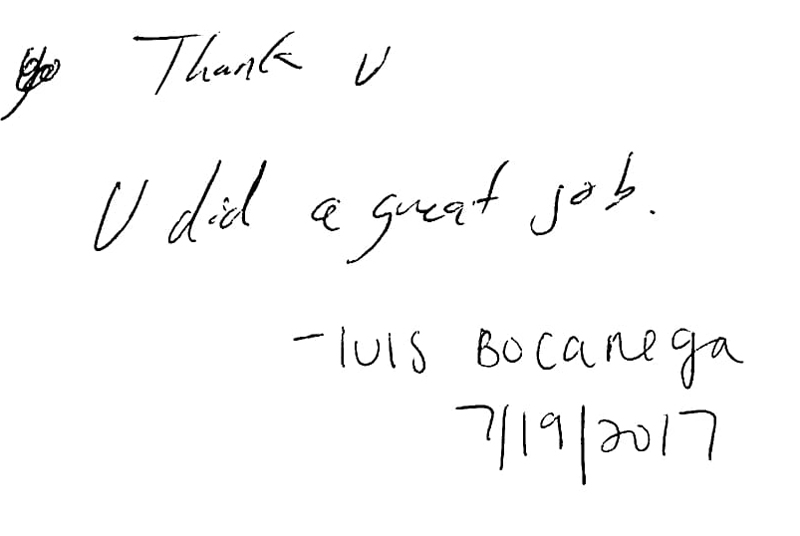 Thank U
U did a great job.
- luis Bocanega
7/19/2017